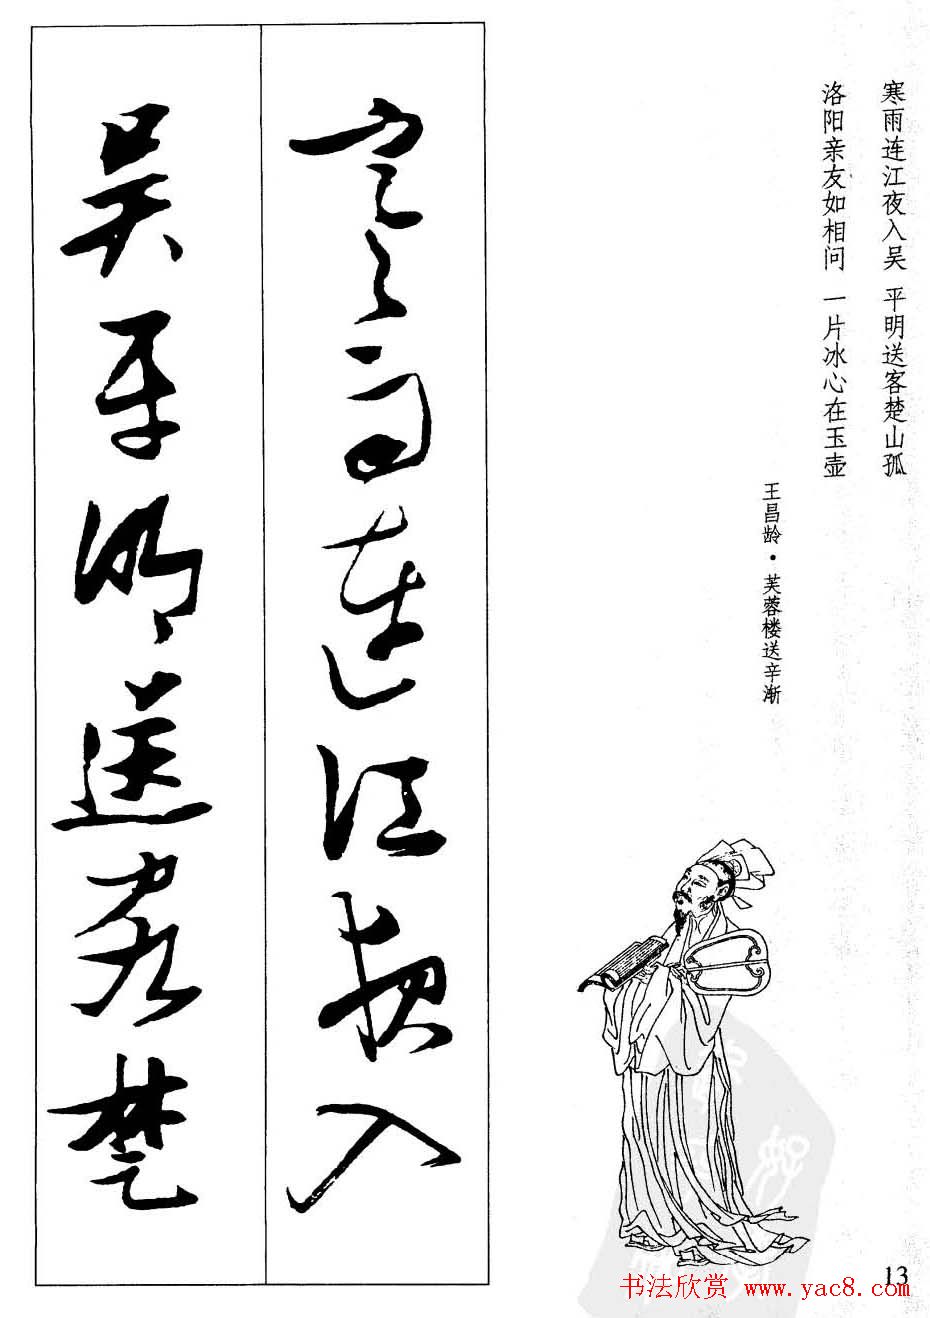 寒雨连江夜入吴 平明送客楚山孤
洛阳亲友如相问 一片冰心在玉壶
王昌龄·芙蓉楼送辛渐
寒雨连江夜入
吴平明送客楚
13
书法欣赏 www.yac8.com